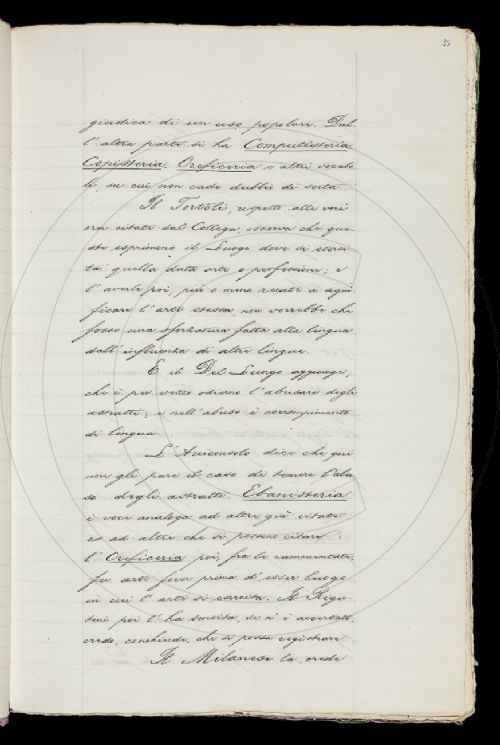 giudica di un uso popolare. Dal
l'altra parte si ha Computisteria
Copisteria, Oreficeria e altri vocabo
li, su cui non cade dubbio di sorta.
Il Tortoli, rispetto alle voci
ora citate dal Collega, osserva che que
ste esprimono il Luogo dove si eserci
ta quella data arte o professione; e
l'averle poi, più o meno recate a signi
ficare l'arte stessa, non vorrebbe che
fosse una sforzatura fatta alla lingua
dall'influenza di altre lingue.
E il Del Lungo aggiunge,
che è pur vezzo odierno l'abusare degli
astratti; e nell'abuso è corrompimento
di lingua.
L'Arciconsolo dice che qui
non gli pare il caso di temere l'abu
so degli astratti. Ebanisteria
è voce analoga ad altre già citate
es ad altre che si possono citare:
l'Oreficeria poi, fra le rammentate,
fu arte forse prima d'esser luogo
in cui l'arte si esercita. Il Rigu
tini poi l'ha sentita, se n'è accertato
credo, conchiude, che si possa registrare
Il Milanesi la crede